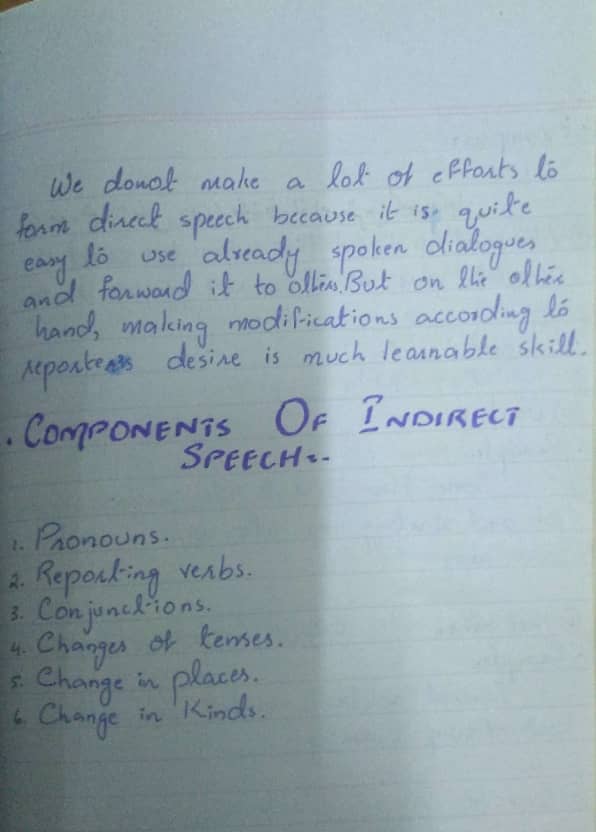 We donot make a lot of efforts to
form direct speech because it is quite
easy to use already spoken dialogues
and forward it to others. But on the other
hand, making modifications according to
reporters desire is much learnable skill.
. COMPONENTS OF INDIRECT
SPEECH:-
1. Pronouns.
2. Reporting verbs.
3. Conjunctions.
4. Changes of tenses.
5. Change in places.
6. Change in Kinds.